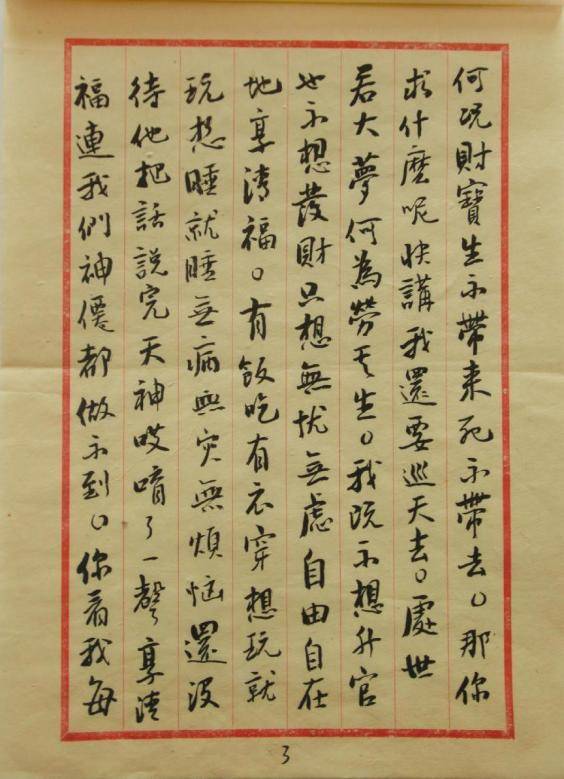 何况財寶生不带来死不带去。那你
求什麽呢快講我還要巡天去。處世
若大夢何為勞其生。我既不想升官
也不想發財只想無忧無虑自由自在
地享清福。有飯吃有衣穿想玩就
玩想睡就睡無病無灾無煩恼還没
待他把話說完天神哎唷了一聲享清
福連我們神僊都做不到。你看我每
3